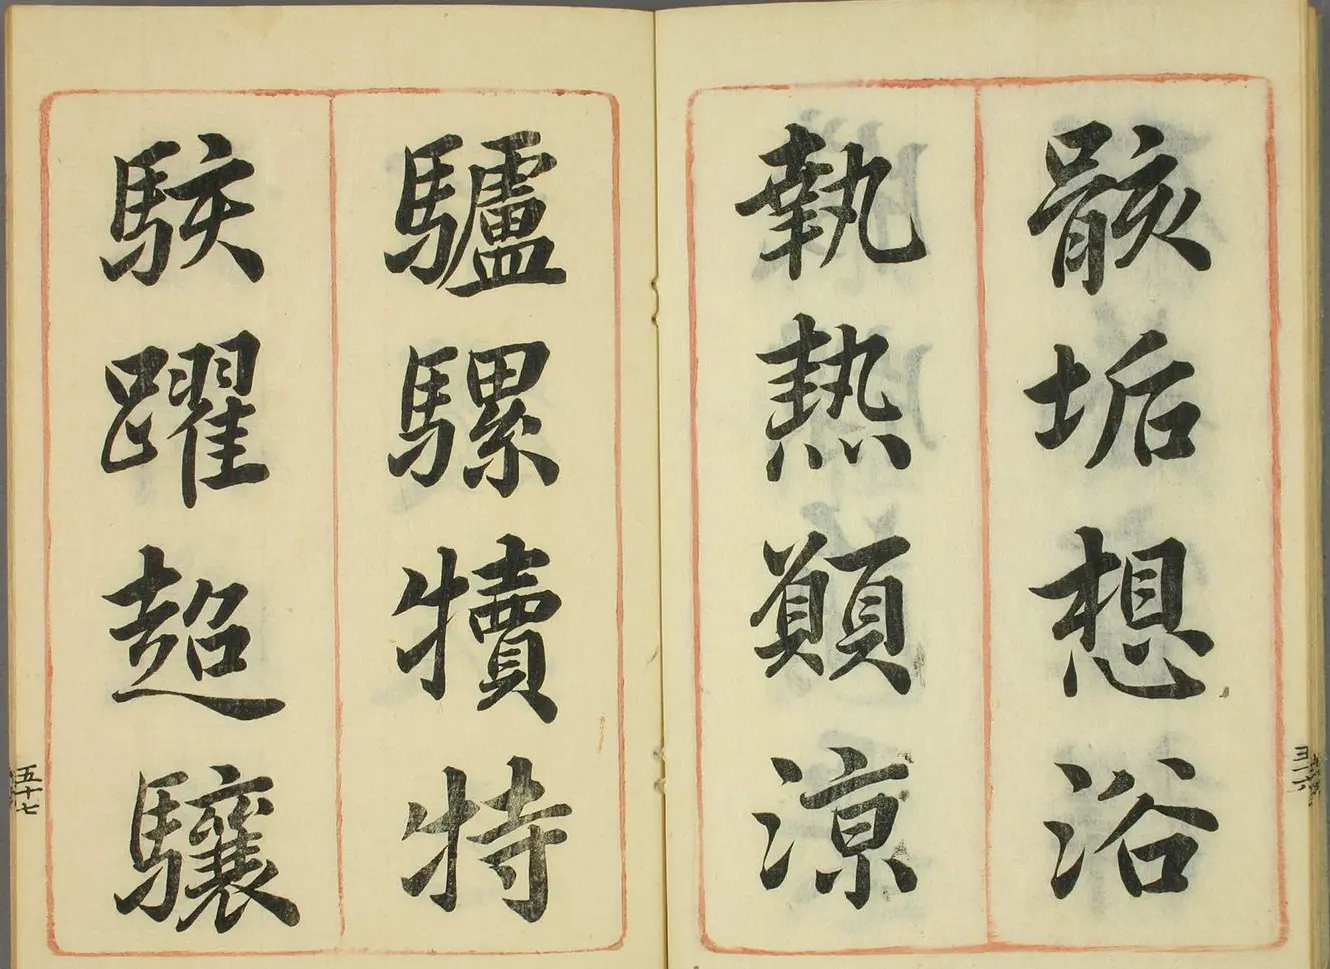 骸垢想浴
執熱願凉
驢騾犢特
駭躍超驤
五十七